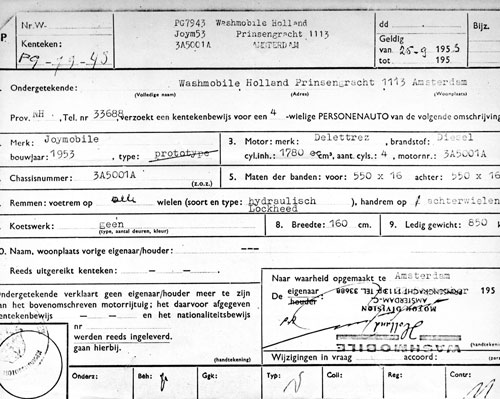 Nr.W- PG7943 Washmobile Holland dd Bijz.
P Kenteken: Joym53 Prinsengracht 1113 Geldig
PG-79-43 3A5001A AMSTERDAM van 25-9 1953
tot 195
Ondergetekende: Washmobile Holland Prinsengracht 1113 Amsterdam
(Volledige naam) (Adres) (Woonplaats)
Prov. NH., Tel. nr 33688, verzoekt een kentekenbewijs voor een 4 -wielige PERSONENAUTO van de volgende omschrijving
Merk: Joymobile 3. Motor: merk: Delettrez, brandstof: Diesel
bouwjaar: 1953, type: prototype cyl.inh.: 1780 cm³, aant. cyls.: 4, motornr.: 3A5001A
Chassisnummer: 3A5001A (z.o.z.) 5. Maten der banden: voor: 550 x 16 achter: 550 x 16
Remmen: voetrem op alle wielen (soort en type: hydraulisch Lockheed), handrem op achterwielen
Koetswerk: geen 8. Breedte: 160 cm. 9. Ledig gewicht: 850
(type, aantal deuren, kleur)
0. Naam, woonplaats vorige eigenaar/houder: ---
Reeds uitgereikt kenteken: — — —
Naar waarheid opgemaakt te Amsterdam 195
Ondergetekende verklaart geen eigenaar/houder meer te zijn
van het bovenomschreven motorrijtuig; het daarvoor afgegeven
kentekenbewijs — — en het nationaliteitsbewijs
nr
werden reeds ingeleverd.
gaan hierbij. (handtekening)
De eigenaar
houder:
WASHMOBILE
Holland
MOTOR DIVISION
AMSTERDAM-C.
PRINSENGRACHT 1113 Tel. 33688
(handtekening)
Wijzigingen in vraag accoord:
Onderz: Beh: Ggk: Typ: Coll: Reg: Contr: